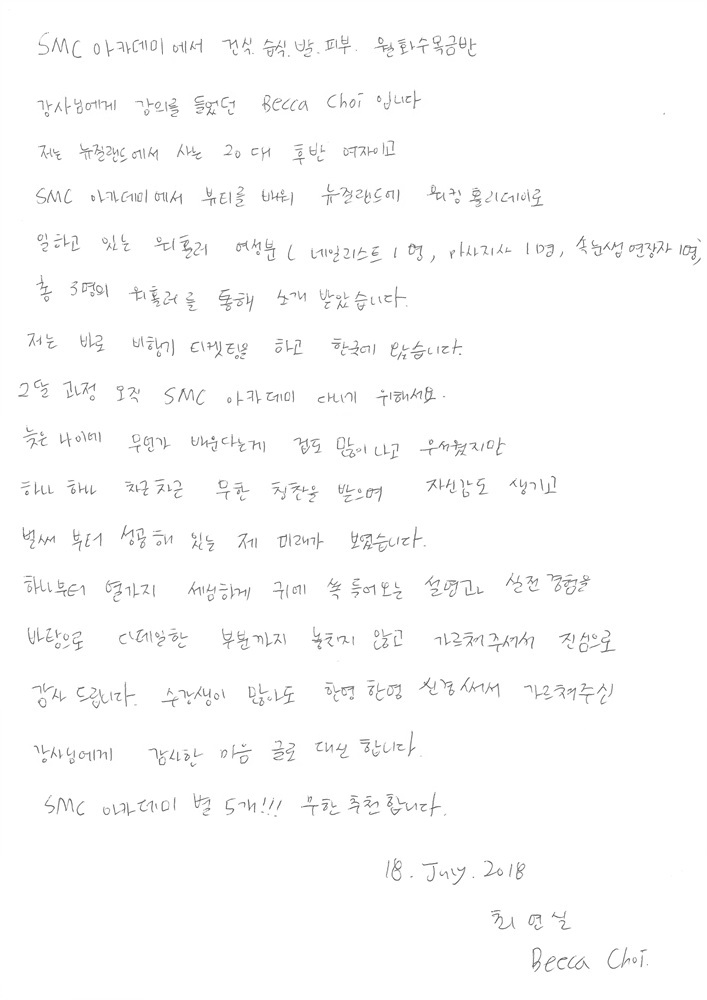 SMC 아카데미에서 건식.습식.발.피부. 월화수목금반
강사님에게 강의를 들었던 Becca Choi 입니다
저는 뉴질랜드에서 사는 20대 후반 여자이고
SMC 아카데미에서 뷰티를 배워 뉴질랜드에 워킹 홀리데이로
일하고 있는 워홀러 여성분 ( 네일리스트 1명, 마사지사 1명, 속눈썹 연장자 1명)
총 3명의 워홀러를 통해 소개 받았습니다.
저는 바로 비행기 티켓팅을 하고 한국에 왔습니다.
2달 과정 오직 SMC 아카데미 다니기 위해서요.
늦은 나이에 무언가 배운다는게 겁도 많이 나고 우서웠지만
하나 하나 차근 차근 무한 칭찬을 받으며 자신감도 생기고
벌써 부터 성공해 있는 제 미래가 보였습니다.
하나부터 열가지 세심하게 귀에 쏙 들어오는 설명과 실전경험을
바탕으로 디테일한 부분까지 놓치지 않고 가르쳐주셔서 진심으로
감사 드립니다. 수강생이 많아도 한명 한명 신경써서 가르쳐주신
강사님에게 감사한 마음 글로 대신 합니다.
SMC 아카데미 별 5개!!! 무한추천합니다.
18. July. 2018
최연실
Becca Choi.